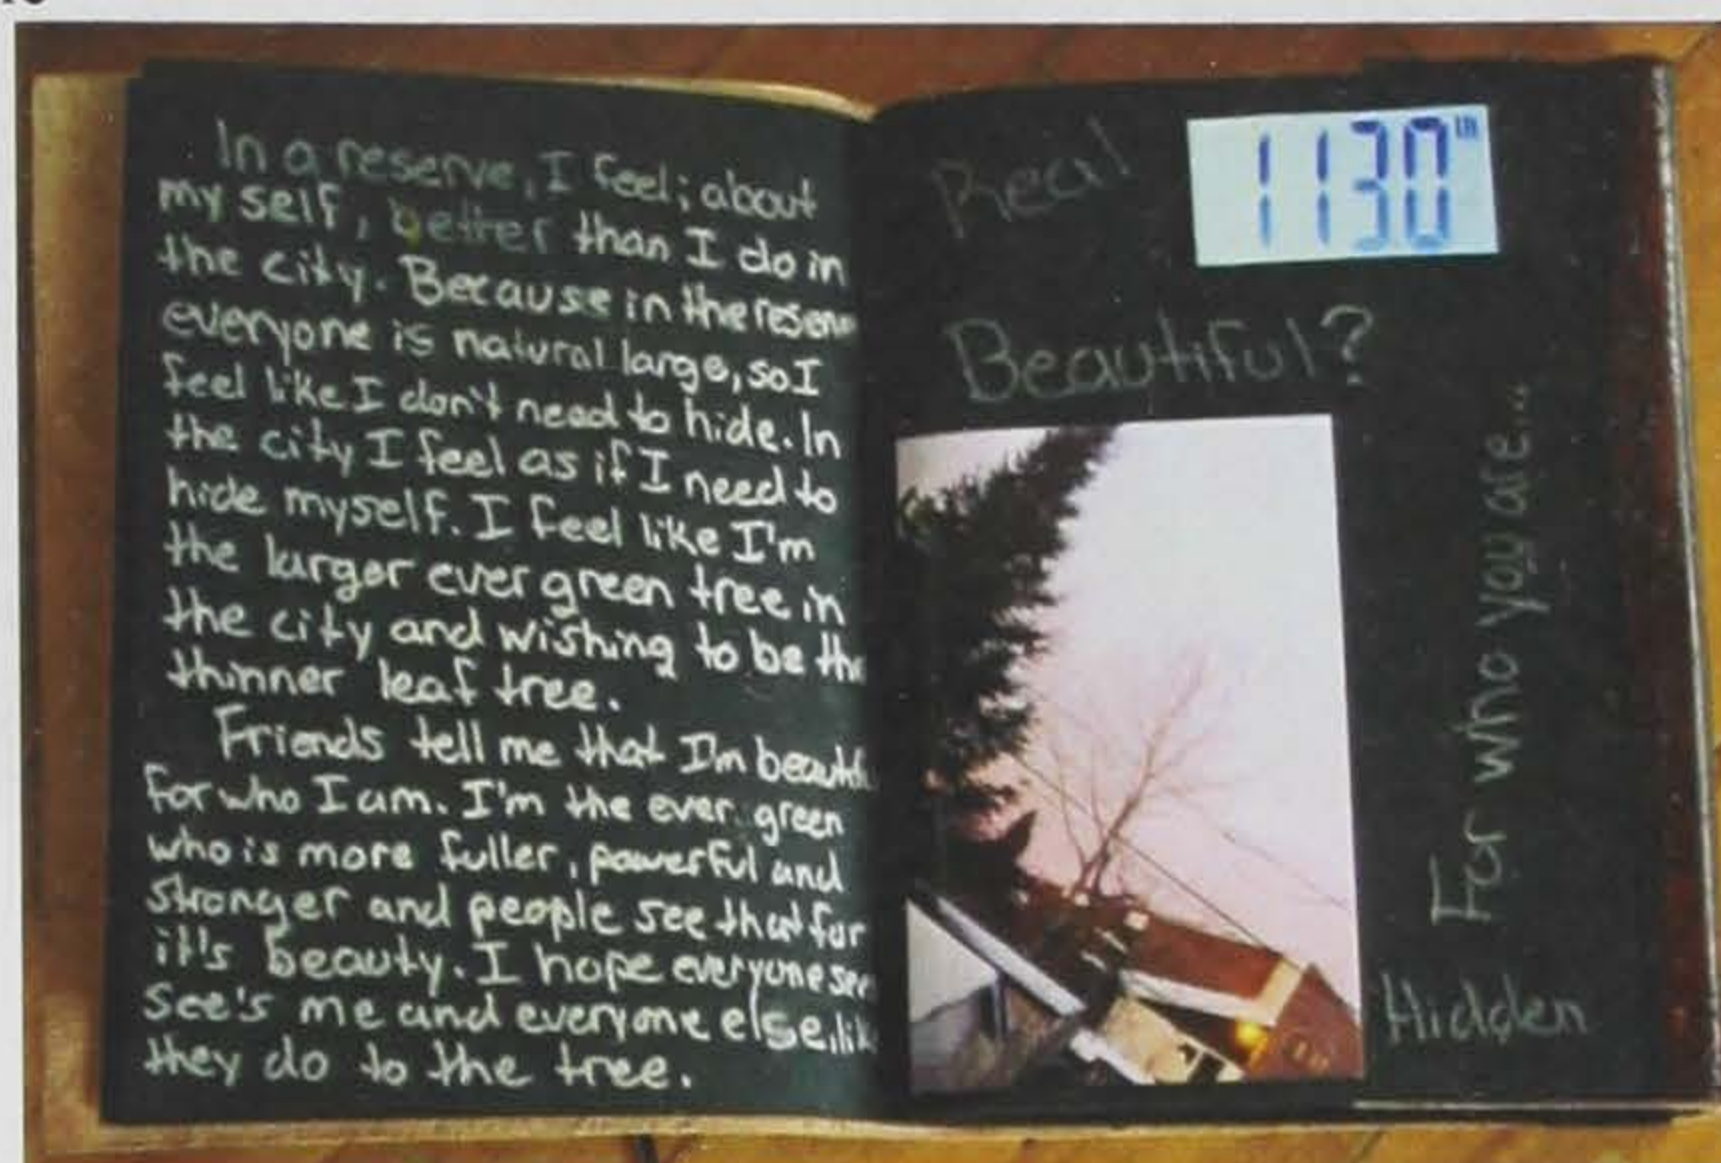 In a reserve, I feel; about
my self, better than I do in
the city. Because in the reserve
everyone is natural large, so I
feel like I don't need to hide. In
the city I feel as if I need to
hide myself. I feel like I'm
the larger ever green tree in
the city and wishing to be the
thinner leaf tree.
Friends tell me that I'm beautiful
for who I am. I'm the ever green
who is more fuller, powerful and
stronger and people see that for
it's beauty. I hope everyone
see's me and everyone else, like
they do to the tree.
Real
1130
1130
Beautiful?
For who you are...
Hidden